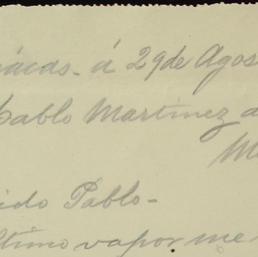 rácas. á 29 de Agos
Pablo Martínez a
M
ido Pablo-
ltimo vapor me